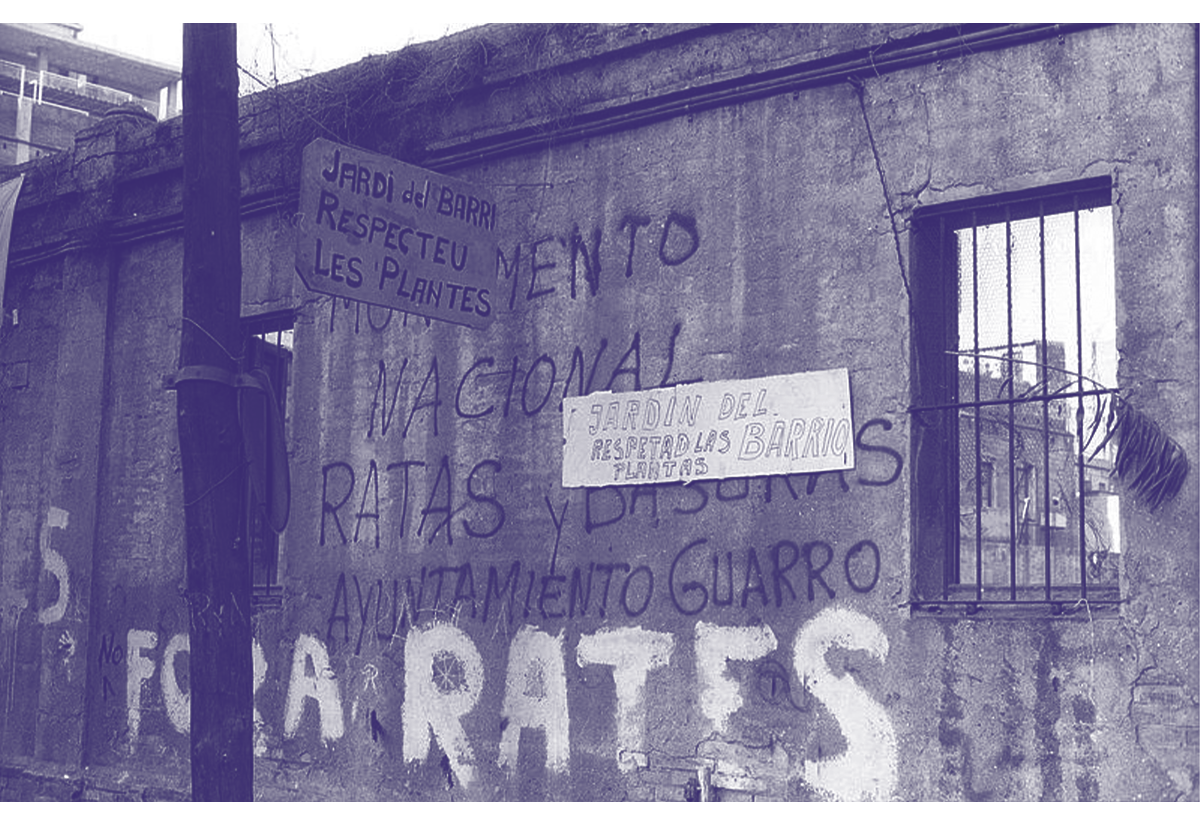 JARDI del BARRI
RESPECTEU
LES PLANTES
MONUMENTO
NACIONAL
RATAS y BASURAS
AYUNTAMIENTO GUARRO
JARDIN DEL
RESPETAD LAS BARRIO
PLANTAS
S
No
FORA RATES